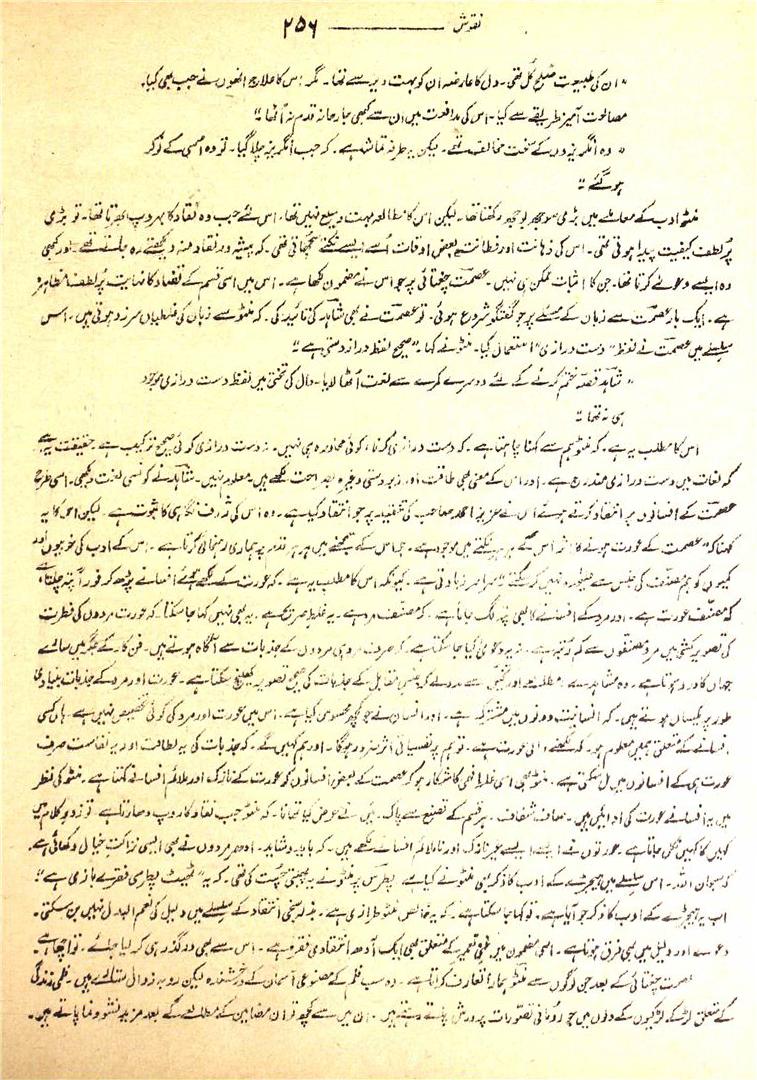 نقوش ــــــــــ ۲۵۶
"ان کی طبیعت صلح کل تھی۔ دل کا عارضہ ان کو بہت دیر سے تھا۔ مگر اس کا علاج انھوں نے جب بھی کیا،
مصالحت آمیز طریقے سے کیا۔ اس کی مدافعت میں ان سے کبھی جارحانہ قدم نہ اُٹھا۔"
"وہ انگریزوں کے سخت مخالف تھے۔ لیکن یہ طرفہ تماشہ ہے۔ کہ جب انگریز چلا گیا۔ تو وہ اسی کے نوکر
ہو گئے۔"
منٹو ادب کے معاملے میں بڑی سوجھ بوجھ رکھتا تھا۔ لیکن اس کا مطالعہ بہت وسیع نہیں تھا۔ اس لئے جب وہ نقاد کا بہروپ بھرتا تھا۔ تو بڑی
پُر لطف کیفیت پیدا ہوتی تھی۔ اس کی ذہانت اور فطانت بعض اوقات اُسے ایسے نکتے سجھاتی تھی۔ کہ پیشہ ور نقاد منہ دیکھتے رہ جاتے تھے۔ اور کبھی
وہ ایسے دعوے کرتا تھا۔ جن کا اثبات ممکن ہی نہیں۔ عصمت چغتائی پر جو اس نے مضمون لکھا ہے۔ اس میں اسی قسم کے تضاد کا نہایت پُر لطف مظاہرہ
ہے۔ ایک بار عصمت سے زبان کے مسئلے پر جو گفتگو شروع ہوئی۔ تو عصمت نے بھی شاہد کی تائید کی۔ کہ منٹو سے زبان کی غلطیاں سرزد ہوتی ہیں۔ اس
سلسلے میں عصمت نے لفظ "دست درازی" استعمال کیا۔ منٹو نے کہا۔ "صحیح لفظ دراز دستی ہے۔"
"شاہد قصہ ختم کرنے کے لئے دوسرے کمرے سے لغت اُٹھا لایا۔ دال کی تختی میں لفظ دست درازی موجود
ہی نہ تھا۔"
اس کا مطلب یہ ہے۔ کہ منٹو ہم سے کہنا چاہتا ہے۔ کہ دست درازی کرنا، کوئی محاورہ ہی نہیں۔ نہ دست درازی کوئی صحیح ترکیب ہے۔ حقیقت یہ ہے
کہ لغات میں دست درازی مندرج ہے۔ اور اس کے معنی بھی طاقت اور زبردستی وغیرہ بصراحت لکھے ہیں۔ معلوم نہیں۔ شاہد نے کونسی لغت دیکھی۔ اسی طرح
عصمت کے افسانوں پر انتقاد کرتے ہوئے اس نے عزیز احمد صاحب کی تنقید پر جو انتقاد کیا ہے۔ وہ اس کی ژرف نگاہی کا ثبوت ہے۔ لیکن اس کا یہ
کہنا کہ "عصمت کے عورت ہونے کا اثر اس کے ہر نکتے میں موجود ہے۔ جو اس کے سمجھنے میں ہر ہر قدم پر ہماری رہنمائی کرتا ہے۔ اس کے ادب کی خوبیوں اور
کمیوں کو ہم مصنف کی جنس سے علیحدہ نہیں کر سکتے" سراسر زیادتی ہے۔ کیونکہ اس کا مطلب یہ ہے۔ کہ عورت کے لکھے ہوئے افسانے پڑھ کر فوراً پتہ چلتا ہے
کہ مصنف عورت ہے۔ اور مرد کے افسانے کا بھی پتہ لگ جاتا ہے۔ کہ مصنف مرد ہے۔ یہ غلط صریح ہے۔ یہ بھی نہیں کہا جا سکتا۔ کہ عورت مردوں کی فطرت
کی تصویر کشی میں مرد مصنفوں سے کم رتبہ ہے۔ نہ یہ دعویٰ کیا جا سکتا ہے۔ کہ صرف مرد ہی مردوں کے جذبات سے آگاہ ہوتے ہیں۔ فن کار کے جگر میں سارے
جہاں کا درد ہوتا ہے۔ وہ مشاہدے، مطالعے اور تخیل سے مدد لے کر جنس مقابل کے جذبات کی صحیح تصویر کھینچ سکتا ہے۔ عورت اور مرد کے جذبات بنیادی
طور پر یکساں ہوتے ہیں۔ کہ انسانیت دونوں میں مشترک ہے۔ اور انسان نے جو کچھ محسوس کیا ہے۔ اس میں عورت اور مرد کی کوئی تخصیص نہیں ہے۔ ہاں کسی
افسانے کے متعلق ہمیں معلوم ہو۔ کہ لکھنے والی عورت ہے۔ تو ہم پر نفسیاتی اثر ضرور ہوگا۔ اور ہم کہیں گے۔ کہ جذبات کی یہ لطافت اور یہ نفاست صرف
عورت ہی کے افسانوں میں مل سکتی ہے۔ منٹو بھی اسی غلط فہمی کا شکار ہو کر عصمت کے بعض افسانوں کو عورت کے نازک اور ملائم افسانے کہتا ہے۔ منٹو کی نظر
میں یہ افسانے عورت کی ادائیں ہیں۔ صاف شفاف۔ ہر قسم کے تصنع سے پاک۔ میں نے عرض کیا تھا نا۔ کہ منٹو جب نقاد کا روپ دھارتا ہے۔ تو زورِ کلام میں
کہیں کا کہیں نکل جاتا ہے۔ عورتوں نے ایسے ایسے غیر نازک اور ناملائم افسانے لکھے ہیں۔ کہ باید و شاید۔ ادھر مردوں نے بھی ایسی نزاکتِ خیال دکھائی ہے،
کہ سبحان اللہ۔ اس سلسلے میں ہیجڑے کے ادب کا ذکر بھی منٹو نے کیا ہے۔ پطرس پر منٹو نے یہ پھبتی چست کی تھی۔ کہ یہ "ٹھیٹ پطرسی فقرے بازی ہے"
اب یہ ہیجڑے کے ادب کا ذکر جو آیا ہے۔ تو کہا جا سکتا ہے۔ کہ یہ خالص منٹو طرازی ہے۔ بذلہ سنجی انتقاد کے سلسلے میں دلیل کی نعم البدل نہیں بن سکتی۔
دعوے اور دلیل میں بھی فرق ہوتا ہے۔ اسی مضمون میں فنِ تعمیر کے متعلق بھی ایک آدھ انتقادی فقرہ ہے۔ اس سے بھی درگذر ہی کر لیا جائے۔ تو اچھا ہے۔
عصمت چغتائی کے بعد جن لوگوں سے منٹو ہمارا تعارف کراتا ہے۔ وہ سب فلم کے مصنوعی آسمان کے درخشندہ لیکن رو بہ زوال ستارے ہیں۔ فلمی زندگی
کے متعلق لڑکے لڑکیوں کے دلوں میں جو رومانی تصورات پرورش پاتے رہتے ہیں۔ ان میں سے کچھ تو ان مضامین کے مطالعے کے بعد مزید نشو و نما پاتے ہیں۔